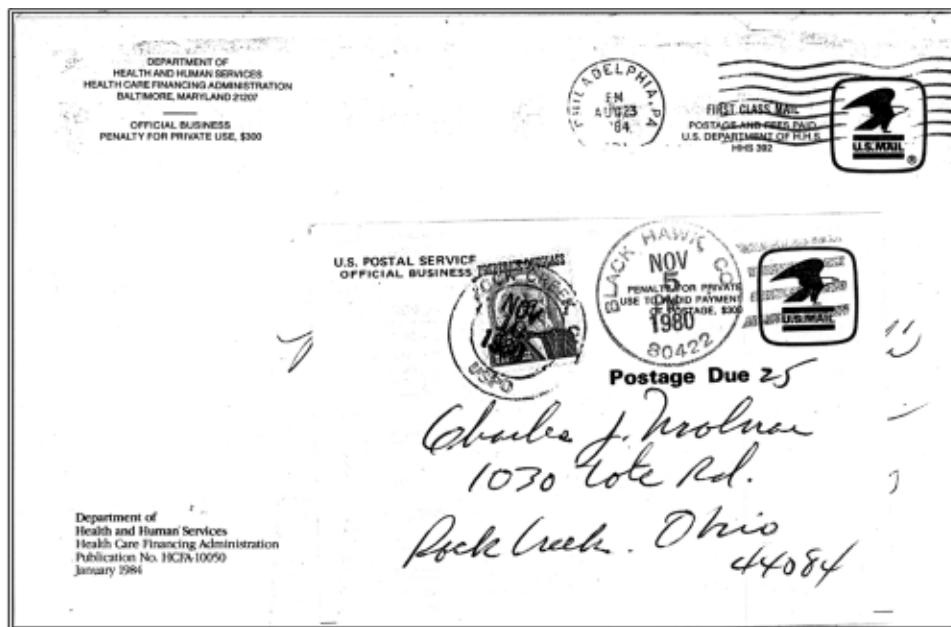 DEPARTMENT OF
HEALTH AND HUMAN SERVICES
HEALTH CARE FINANCING ADMINISTRATION
BALTIMORE, MARYLAND 21207
OFFICIAL BUSINESS
PENALTY FOR PRIVATE USE, $300
PHILADELPHIA, PA
PM
AUG 23
'84
FIRST CLASS MAIL
POSTAGE AND FEES PAID
U.S. DEPARTMENT OF H.H.S.
HHS 392
U.S.MAIL
®
U.S. POSTAL SERVICE
OFFICIAL BUSINESS
ROCK CREEK
Nov
USPO
BLACK HAWK, CO
NOV
5
1980
80422
PENALTY FOR PRIVATE
USE TO AVOID PAYMENT
OF POSTAGE, $300
U.S.MAIL
Postage Due 25
Charles J. Molnar
1030 Cote Rd.
Rock Creek. Ohio
44084
Department of
Health and Human Services
Health Care Financing Administration
Publication No. HCFA-10050
January 1984